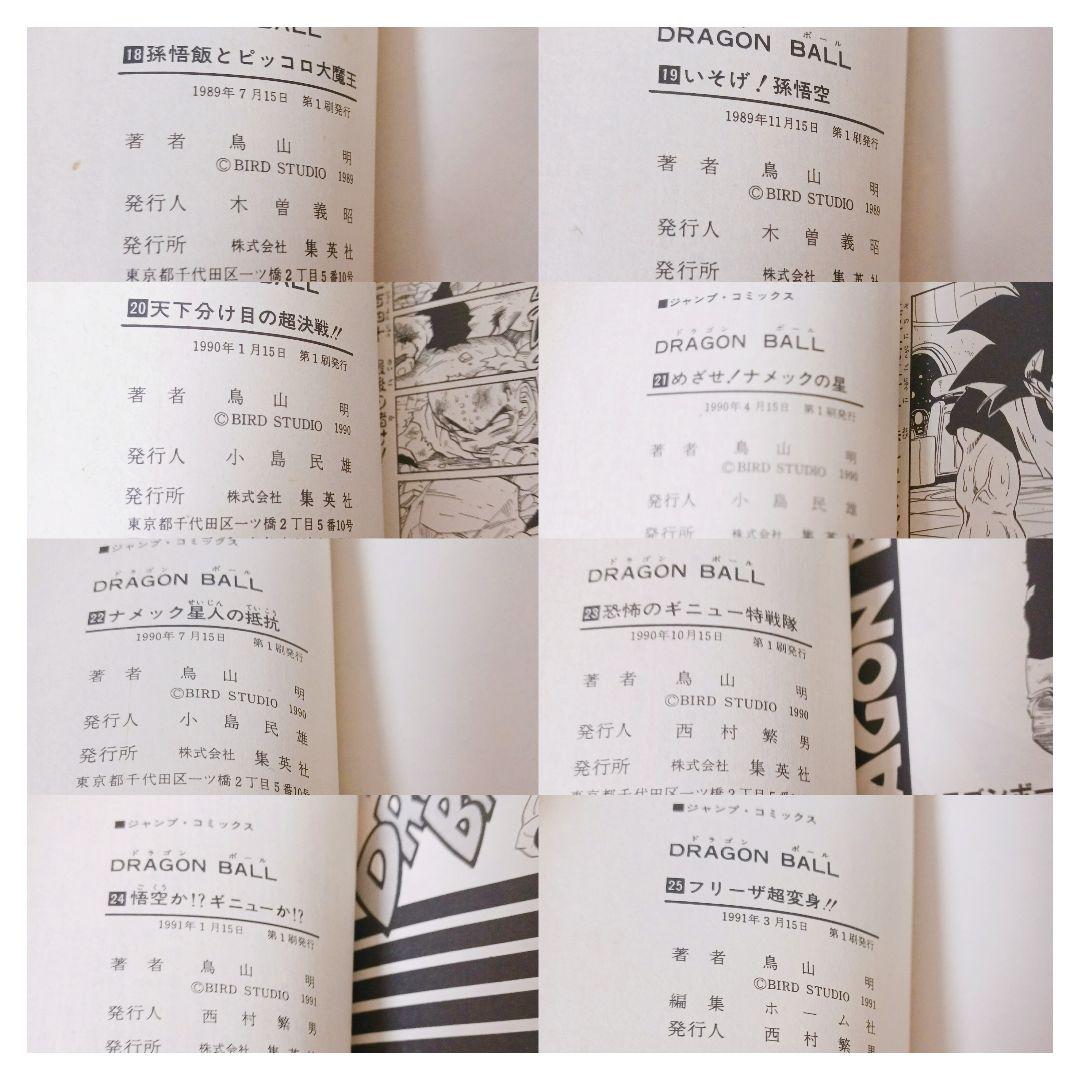 BALL
18 孫悟飯とピッコロ大魔王
1989年7月15日 第1刷発行
著者 鳥山明
©BIRD STUDIO 1989
発行人 木曽義昭
発行所 株式会社 集英社
東京都千代田区一ツ橋2丁目5番10号
ボール
DRAGON BALL
19 いそげ!孫悟空
1989年11月15日 第1刷発行
著者 鳥山明
©BIRD STUDIO 1989
発行人 木曽義昭
発行所 株式会社 集英社
BALL
20 天下分け目の超決戦!!
1990年1月15日 第1刷発行
著者 鳥山明
©BIRD STUDIO 1990
発行人 小島民雄
発行所 株式会社 集英社
東京都千代田区一ツ橋2丁目5番10号
■ジャンプ・コミックス
ドラゴン ボール
DRAGON BALL
21 めざせ!ナメックの星
1990年4月15日 第1刷発行
著者 鳥山明
©BIRD STUDIO 1990
発行人 小島民雄
発行所 株式会社 集英社
■ジャンプ・コミックス
ドラゴン ボール
DRAGON BALL
せいじん ていこう
22 ナメック星人の抵抗
1990年7月15日 第1刷発行
著者 鳥山明
©BIRD STUDIO 1990
発行人 小島民雄
発行所 株式会社 集英社
東京都千代田区一ツ橋2丁目5番10号
ドラゴン ボール
DRAGON BALL
23 恐怖のギニュー特戦隊
1990年10月15日 第1刷発行
著者 鳥山明
©BIRD STUDIO 1990
発行人 西村繁男
発行所 株式会社 集英社
東京都千代田区一ツ橋2丁目5番10号
■ジャンプ・コミックス
ドラゴン ボール
DRAGON BALL
ごくう
24 悟空か!?ギニューか!?
1991年1月15日 第1刷発行
著者 鳥山明
©BIRD STUDIO 1991
発行人 西村繁男
発行所 株式会社 集英
■ジャンプ・コミックス
ドラゴン ボール
DRAGON BALL
25 フリーザ超変身!!
1991年3月15日 第1刷発行
著者 鳥山明
©BIRD STUDIO 1991
編集 ホーム社
発行人 西村繁男